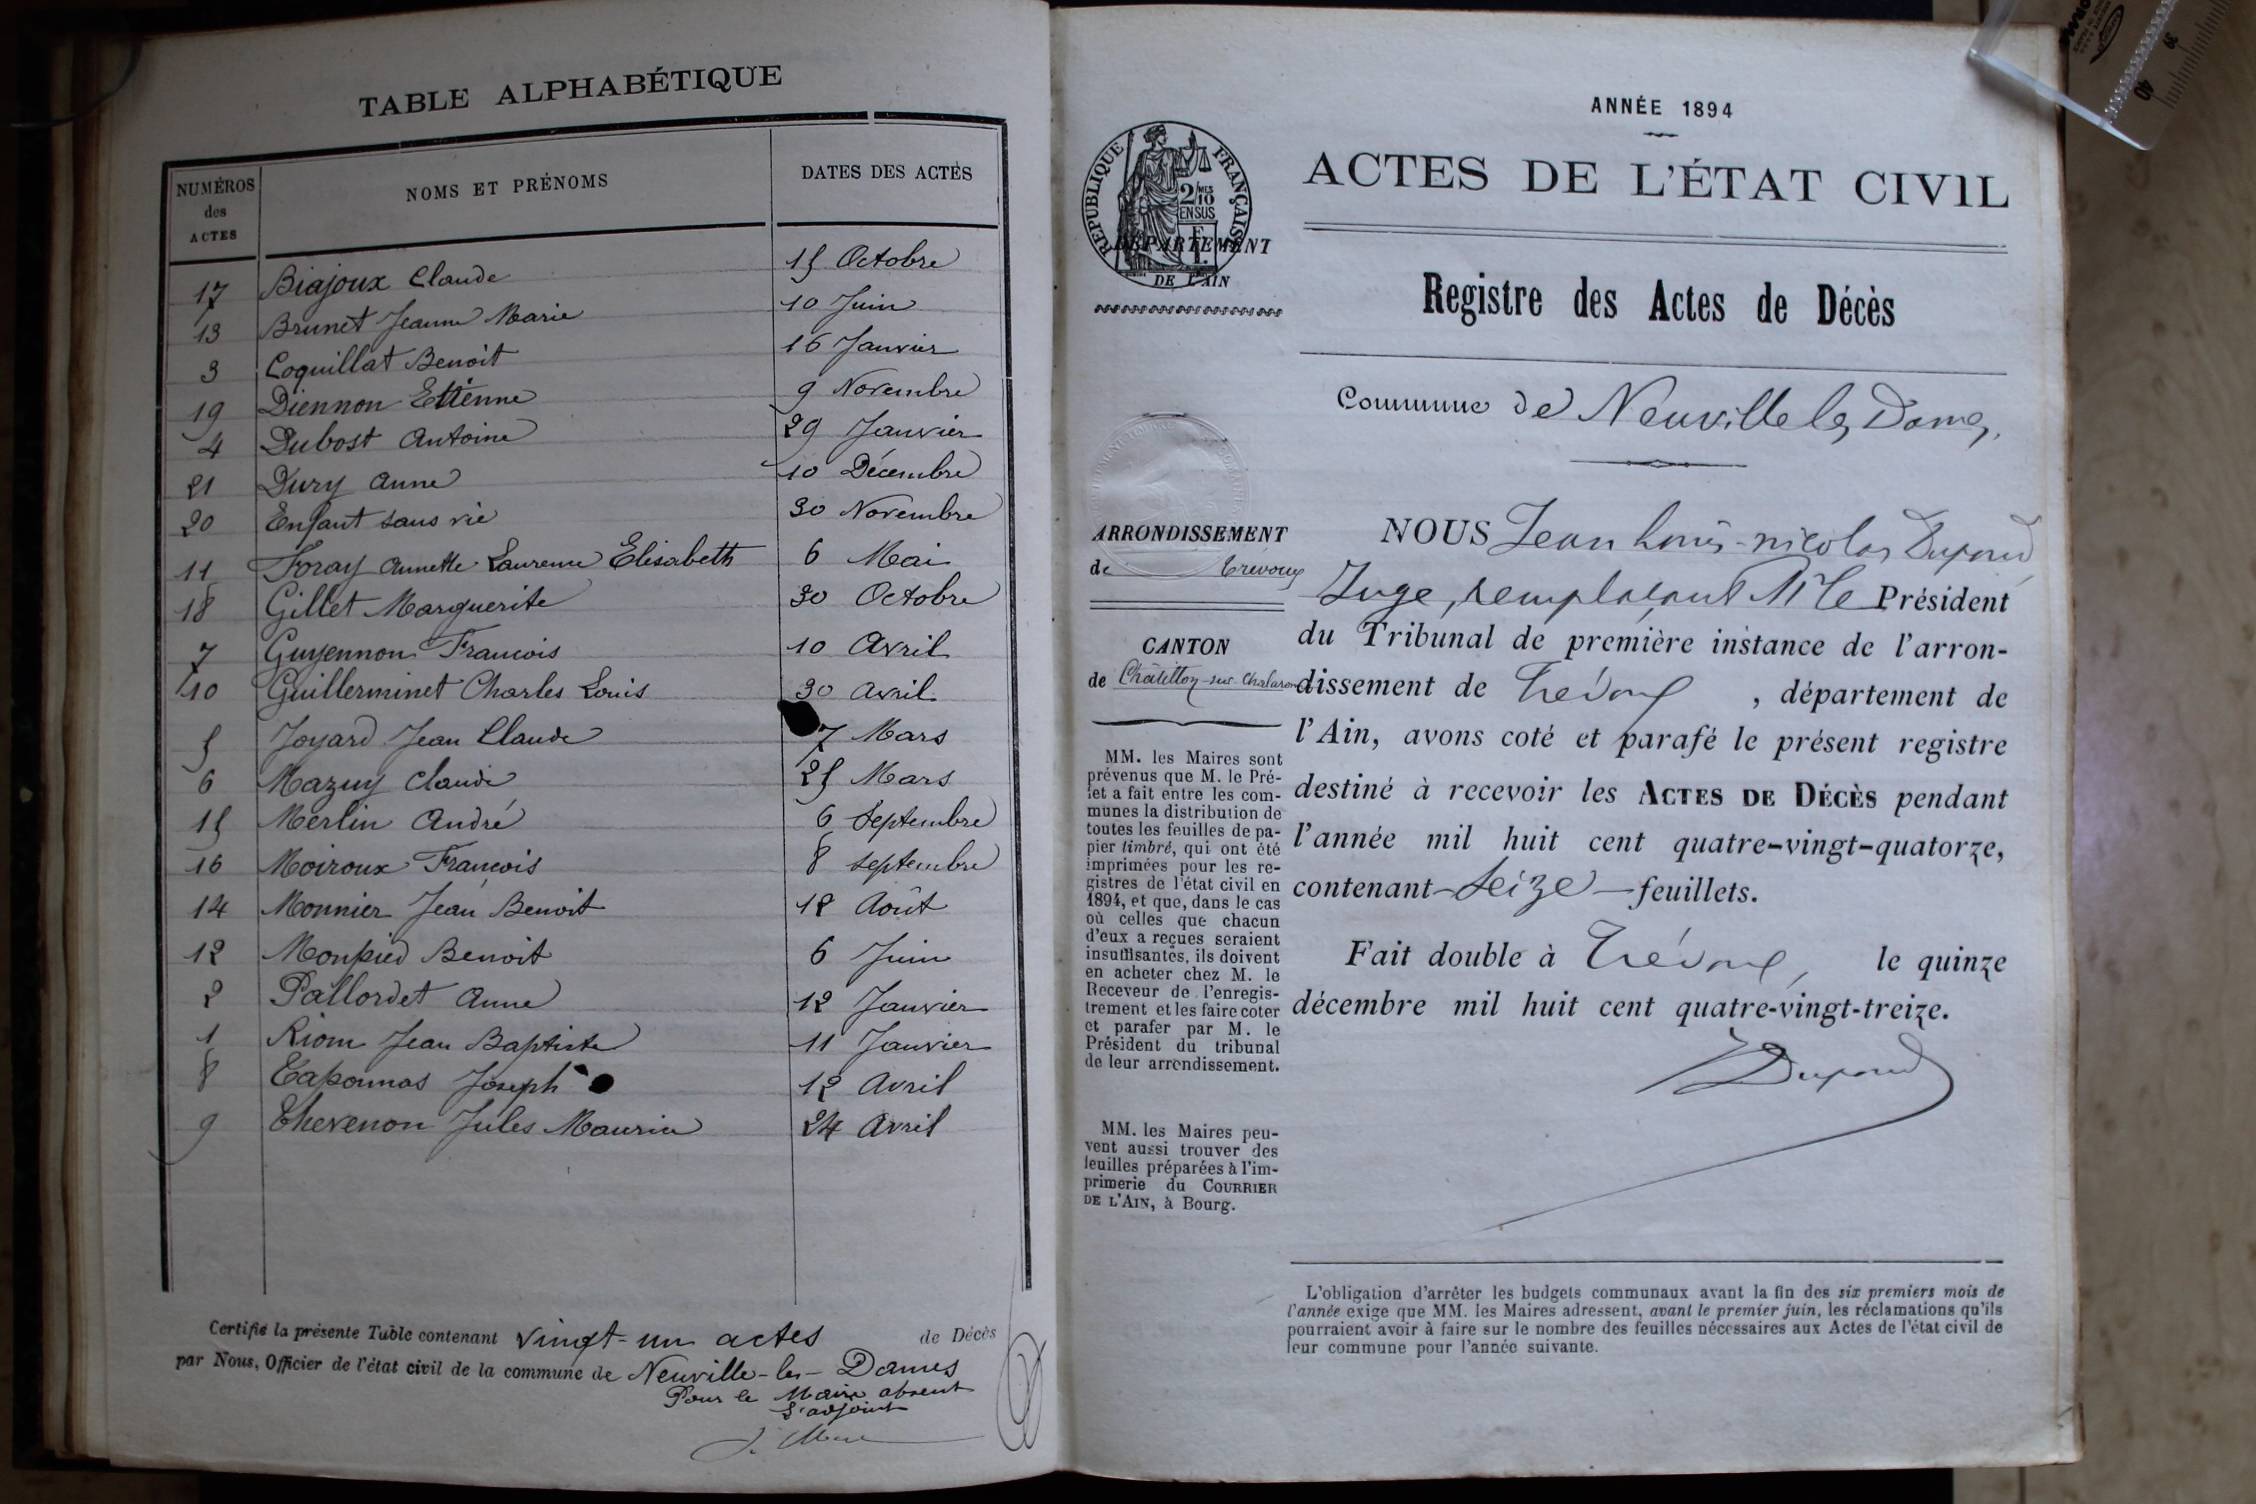 TABLE ALPHABÉTIQUE
NUMÉROS des ACTES
NOMS ET PRÉNOMS
DATES DES ACTES
17 Biajoux Claude 15 Octobre
13 Brunet Jeanne Marie 10 Juin
3 Coquillat Benoit 16 Janvier
19 Diennon Etienne 9 Novembre
4 Dubost Antoine 29 Janvier
21 Dury Anne 10 Décembre
20 Enfant sans vie 30 Novembre
11 Foray Annette Laurence Elisabeth 6 Mai
18 Gillet Marguerite 30 Octobre
7 Guyennon François 10 Avril
10 Guillerminet Charles Louis 30 Avril
5 Joyard Jean Claude 7 Mars
6 Mazuy Claude 25 Mars
15 Merlin André 6 Septembre
16 Moiroux François 8 septembre
14 Monnier Jean Benoit 12 Août
12 Monpied Benoit 6 Juin
2 Pallordet Anne 12 Janvier
1 Riom Jean Baptiste 11 Janvier
8 Taponnas Joseph 12 Avril
9 Thevenon Jules Maurice 24 Avril
Certifié la présente Table contenant vingt-un actes de Décès
par Nous, Officier de l'état civil de la commune de Neuville-les-Dames
Pour le Maire absent
L'adjoint
ANNÉE 1894
ACTES DE L'ÉTAT CIVIL
RÉPUBLIQUE FRANÇAISE
2/10 MES
EN SUS
DÉPARTEMENT
DE L'AIN
Registre des Actes de Décès
Commune de Neuville les Dames.
ARRONDISSEMENT
de Trévoux
CANTON
de Châtillon-sur-Chalaronne
MM. les Maires sont
prévenus que M. le Pré-
fet a fait entre les com-
munes la distribution de
toutes les feuilles de pa-
pier timbré, qui ont été
imprimées pour les re-
gistres de l'état civil en
1894, et que, dans le cas
où celles que chacun
d'eux a reçues seraient
insuffisantes, ils doivent
en acheter chez M. le
Receveur de l'enregis-
trement et les faire coter
et parafer par M. le
Président du tribunal
de leur arrondissement.
MM. les Maires peu-
vent aussi trouver des
feuilles préparées à l'im-
primerie du COURRIER
DE L'AIN, à Bourg.
NOUS Jean Louis-nicolas Dupond
Juge, remplaçant Mr le Président
du Tribunal de première instance de l'arron-
dissement de Trévoux, département de
l'Ain, avons coté et parafé le présent registre
destiné à recevoir les ACTES DE DÉCÈS pendant
l'année mil huit cent quatre-vingt-quatorze,
contenant Seize feuillets.
Fait double à Trévoux, le quinze
décembre mil huit cent quatre-vingt-treize.
Dupond
L'obligation d'arrêter les budgets communaux avant la fin des six premiers mois de
l'année exige que MM. les Maires adressent, avant le premier juin, les réclamations qu'ils
pourraient avoir à faire sur le nombre des feuilles nécessaires aux Actes de l'état civil de
leur commune pour l'année suivante.
39
40